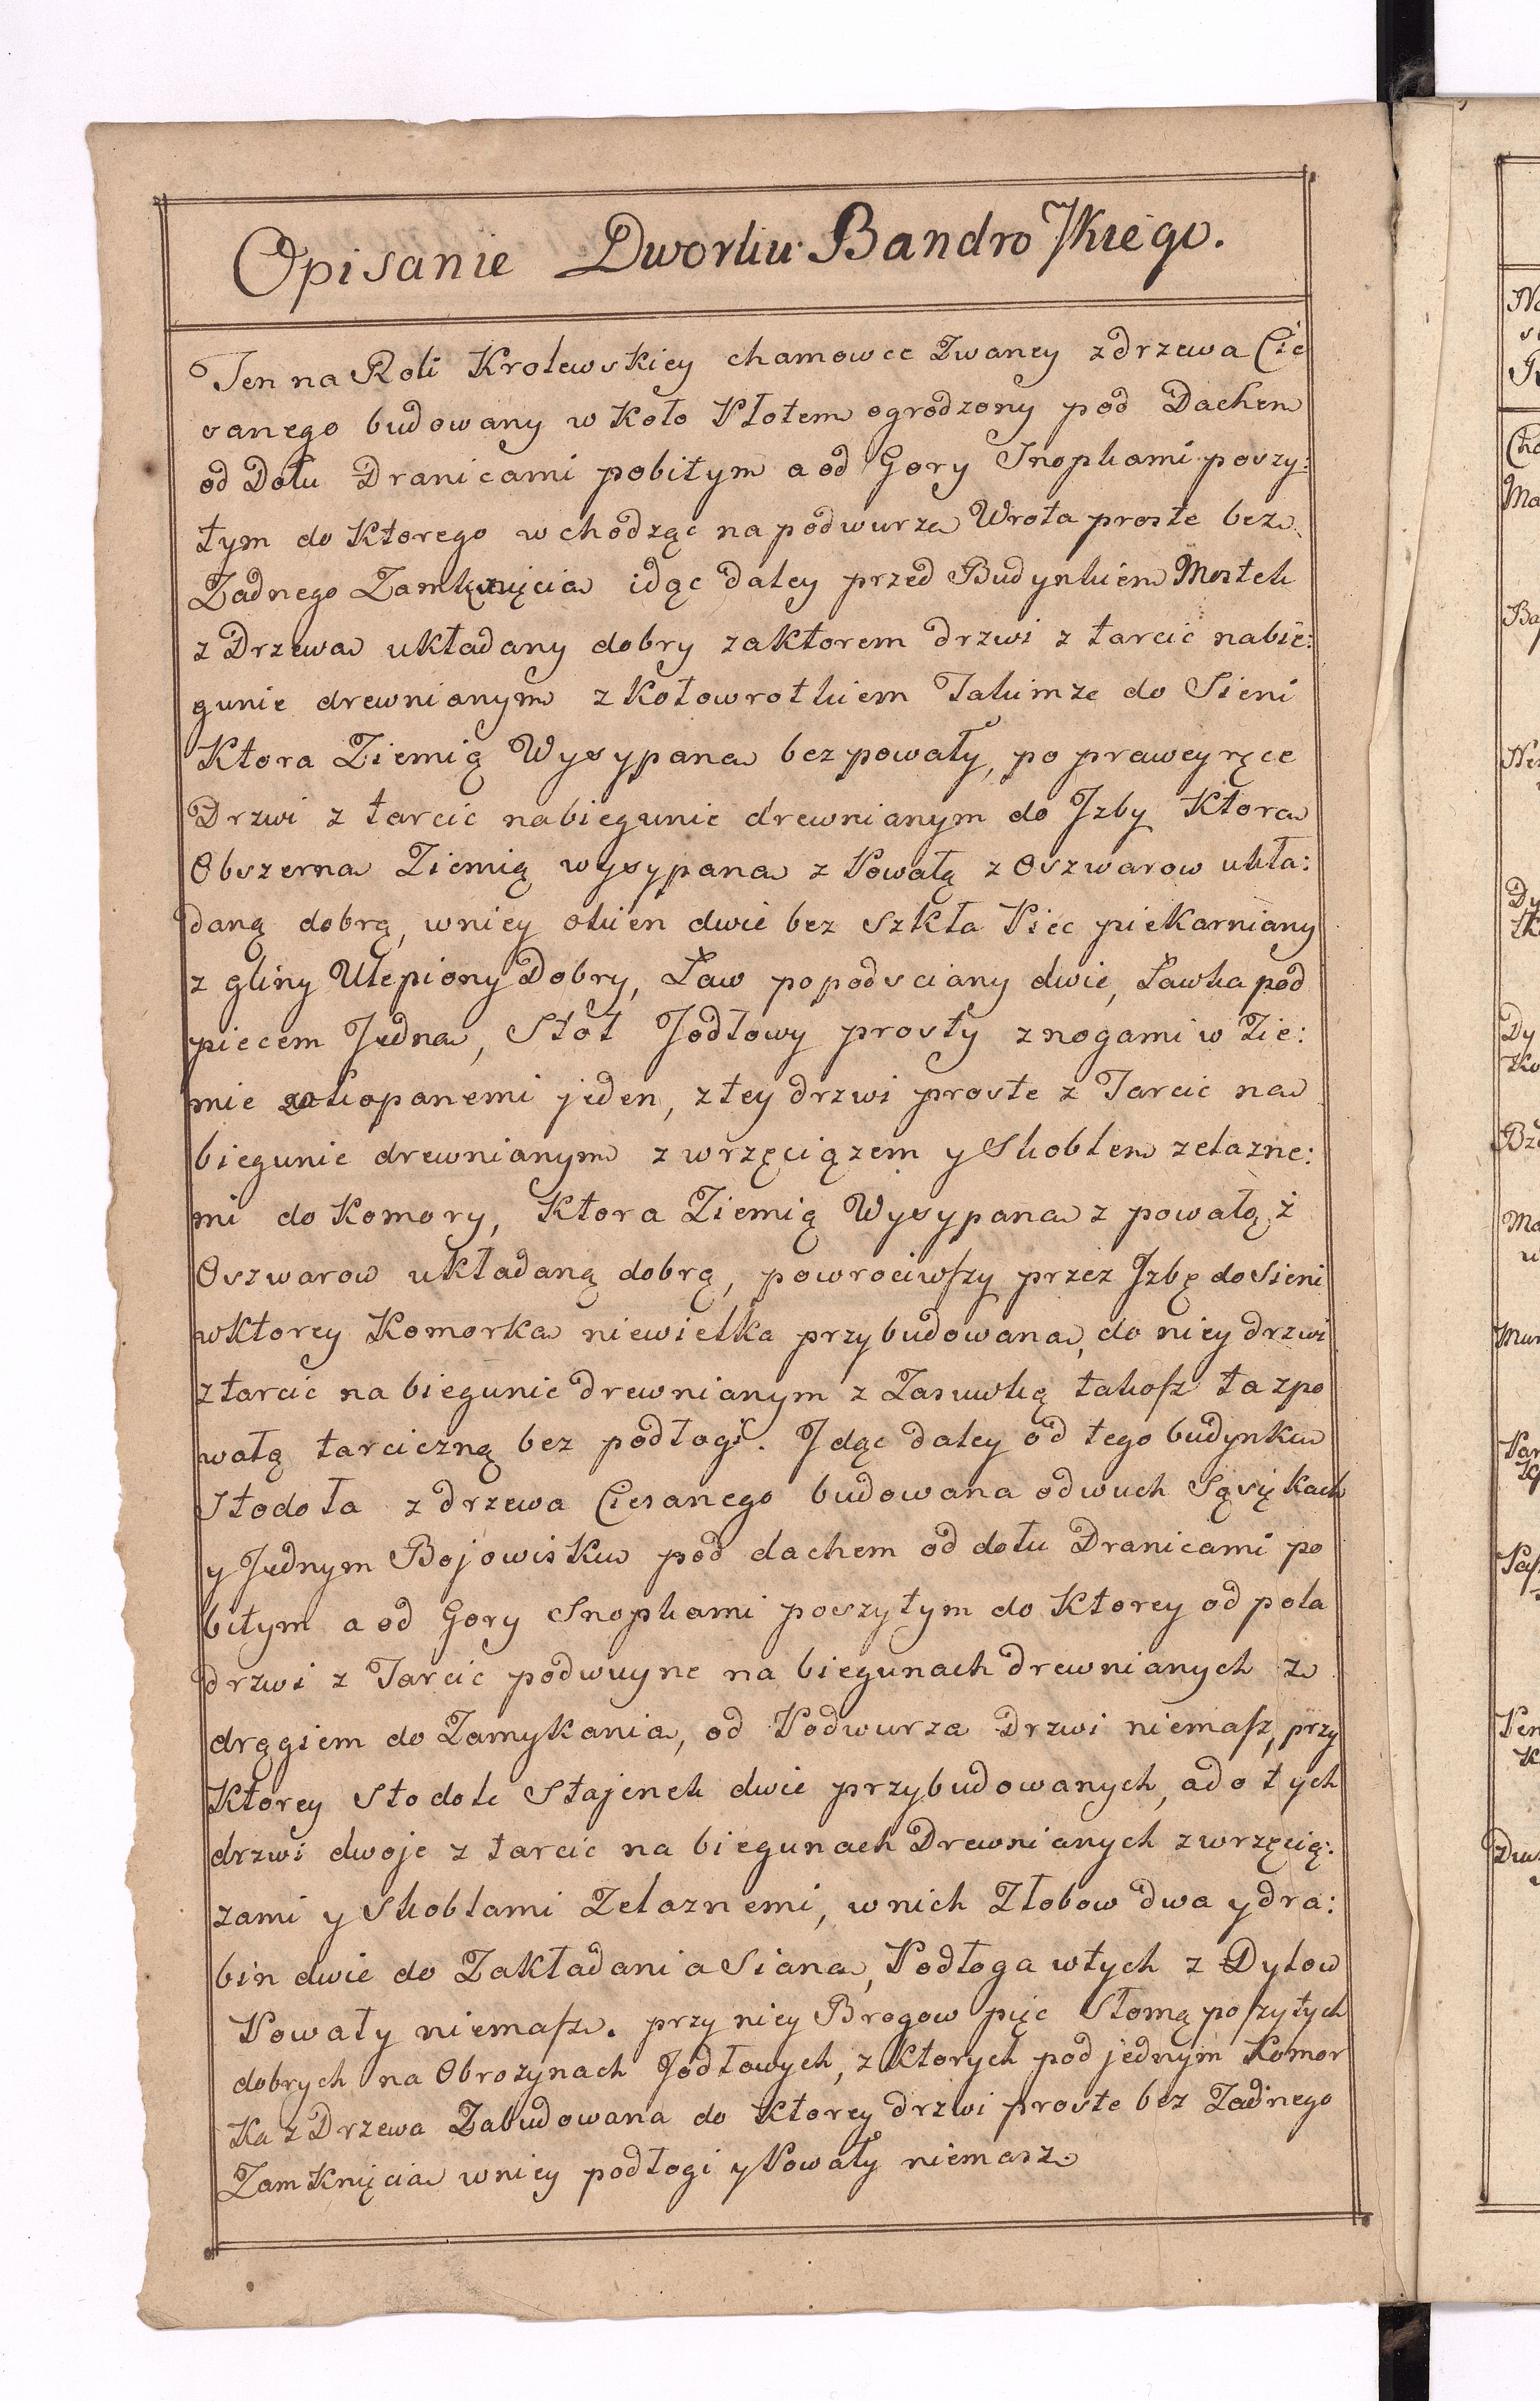 Opisanie Dworku Bandroſkiego.
Ten na Roli Krolewskiey chamowce Zwaney z drzewa Cie
sanego budowany w Koło Płotem ogrodzony pod Dachem
od Dołu Dranicami pobitym a od Gory Snopkami poszy:
tym do Ktorego wchodząc na podwurze Wrota proste bez
Zadnego Zamknięcia idąc daley przed Budynkiem Mostek
z Drzewa układany dobry za ktorem drzwi z tarcic na bie:
gunie drewnianym z Kołowrotkiem Takimże do Sieni
Ktora Ziemią Wysypana bez powały, po prawey ręce
Drzwi z tarcic na biegunie drewnianym do Jzby Ktora
Obszerna Ziemią wysypana z Powałą z Oszwarow ukła:
daną dobrą, w niey okien dwie bez szkła Piec piekarniany
z gliny Ulepiony Dobry, Ław popod sciany dwie, Ławka pod
piecem Jedna, Stoł Jodłowy prosty z nogami w Zie:
mie zakopanemi jeden, z tey drzwi proste z Tarcic na
biegunie drewnianym z wrzęciązem y Skoblem zelazne:
mi do Komory, Ktora Ziemią Wysypana z powałą z
Oszwarow układaną dobrą, powrociwſzy przez Jzbę do Sieni
w Ktorey Komorka niewielka przybudowana, do niey drzwi
z tarcic na biegunie drewnianym z Zasuwką takoſz ta z po
wałą tarciczną bez podłogi. Jdąc daley od tego budynku
Stodoła z drzewa Ciesanego budowana o dwuch Sąsiękach
y Jednym Bojowisku pod dachem od dołu Dranicami po
bitym a od Gory Snopkami poszytym do Ktorey od pola
drzwi z Tarcic podwuyne na biegunach drewnianych z
drągiem do Zamykania, od Podwurza Drzwi niemaſz, przy
Ktorey Stodole Stajenek dwie przybudowanych, a do tych
drzwi dwoje z tarcic na biegunach Drewnianych z wrzęcią:
zami y Skoblami Zelaznemi, w nich Złobow dwa y dra:
bin dwie do Zakładania Siana, Podłoga w tych z Dylow
Powały niemaſz. przy niey Brogow pięc Słomą poſzytych
dobrych na Obrozynach Jodłowych, z Ktorych pod jednym Komor
Ka z Drzewa Zabudowana do Ktorey drzwi proste bez Zadnego
Zamknięcia w niey podłogi y Powały niemasz